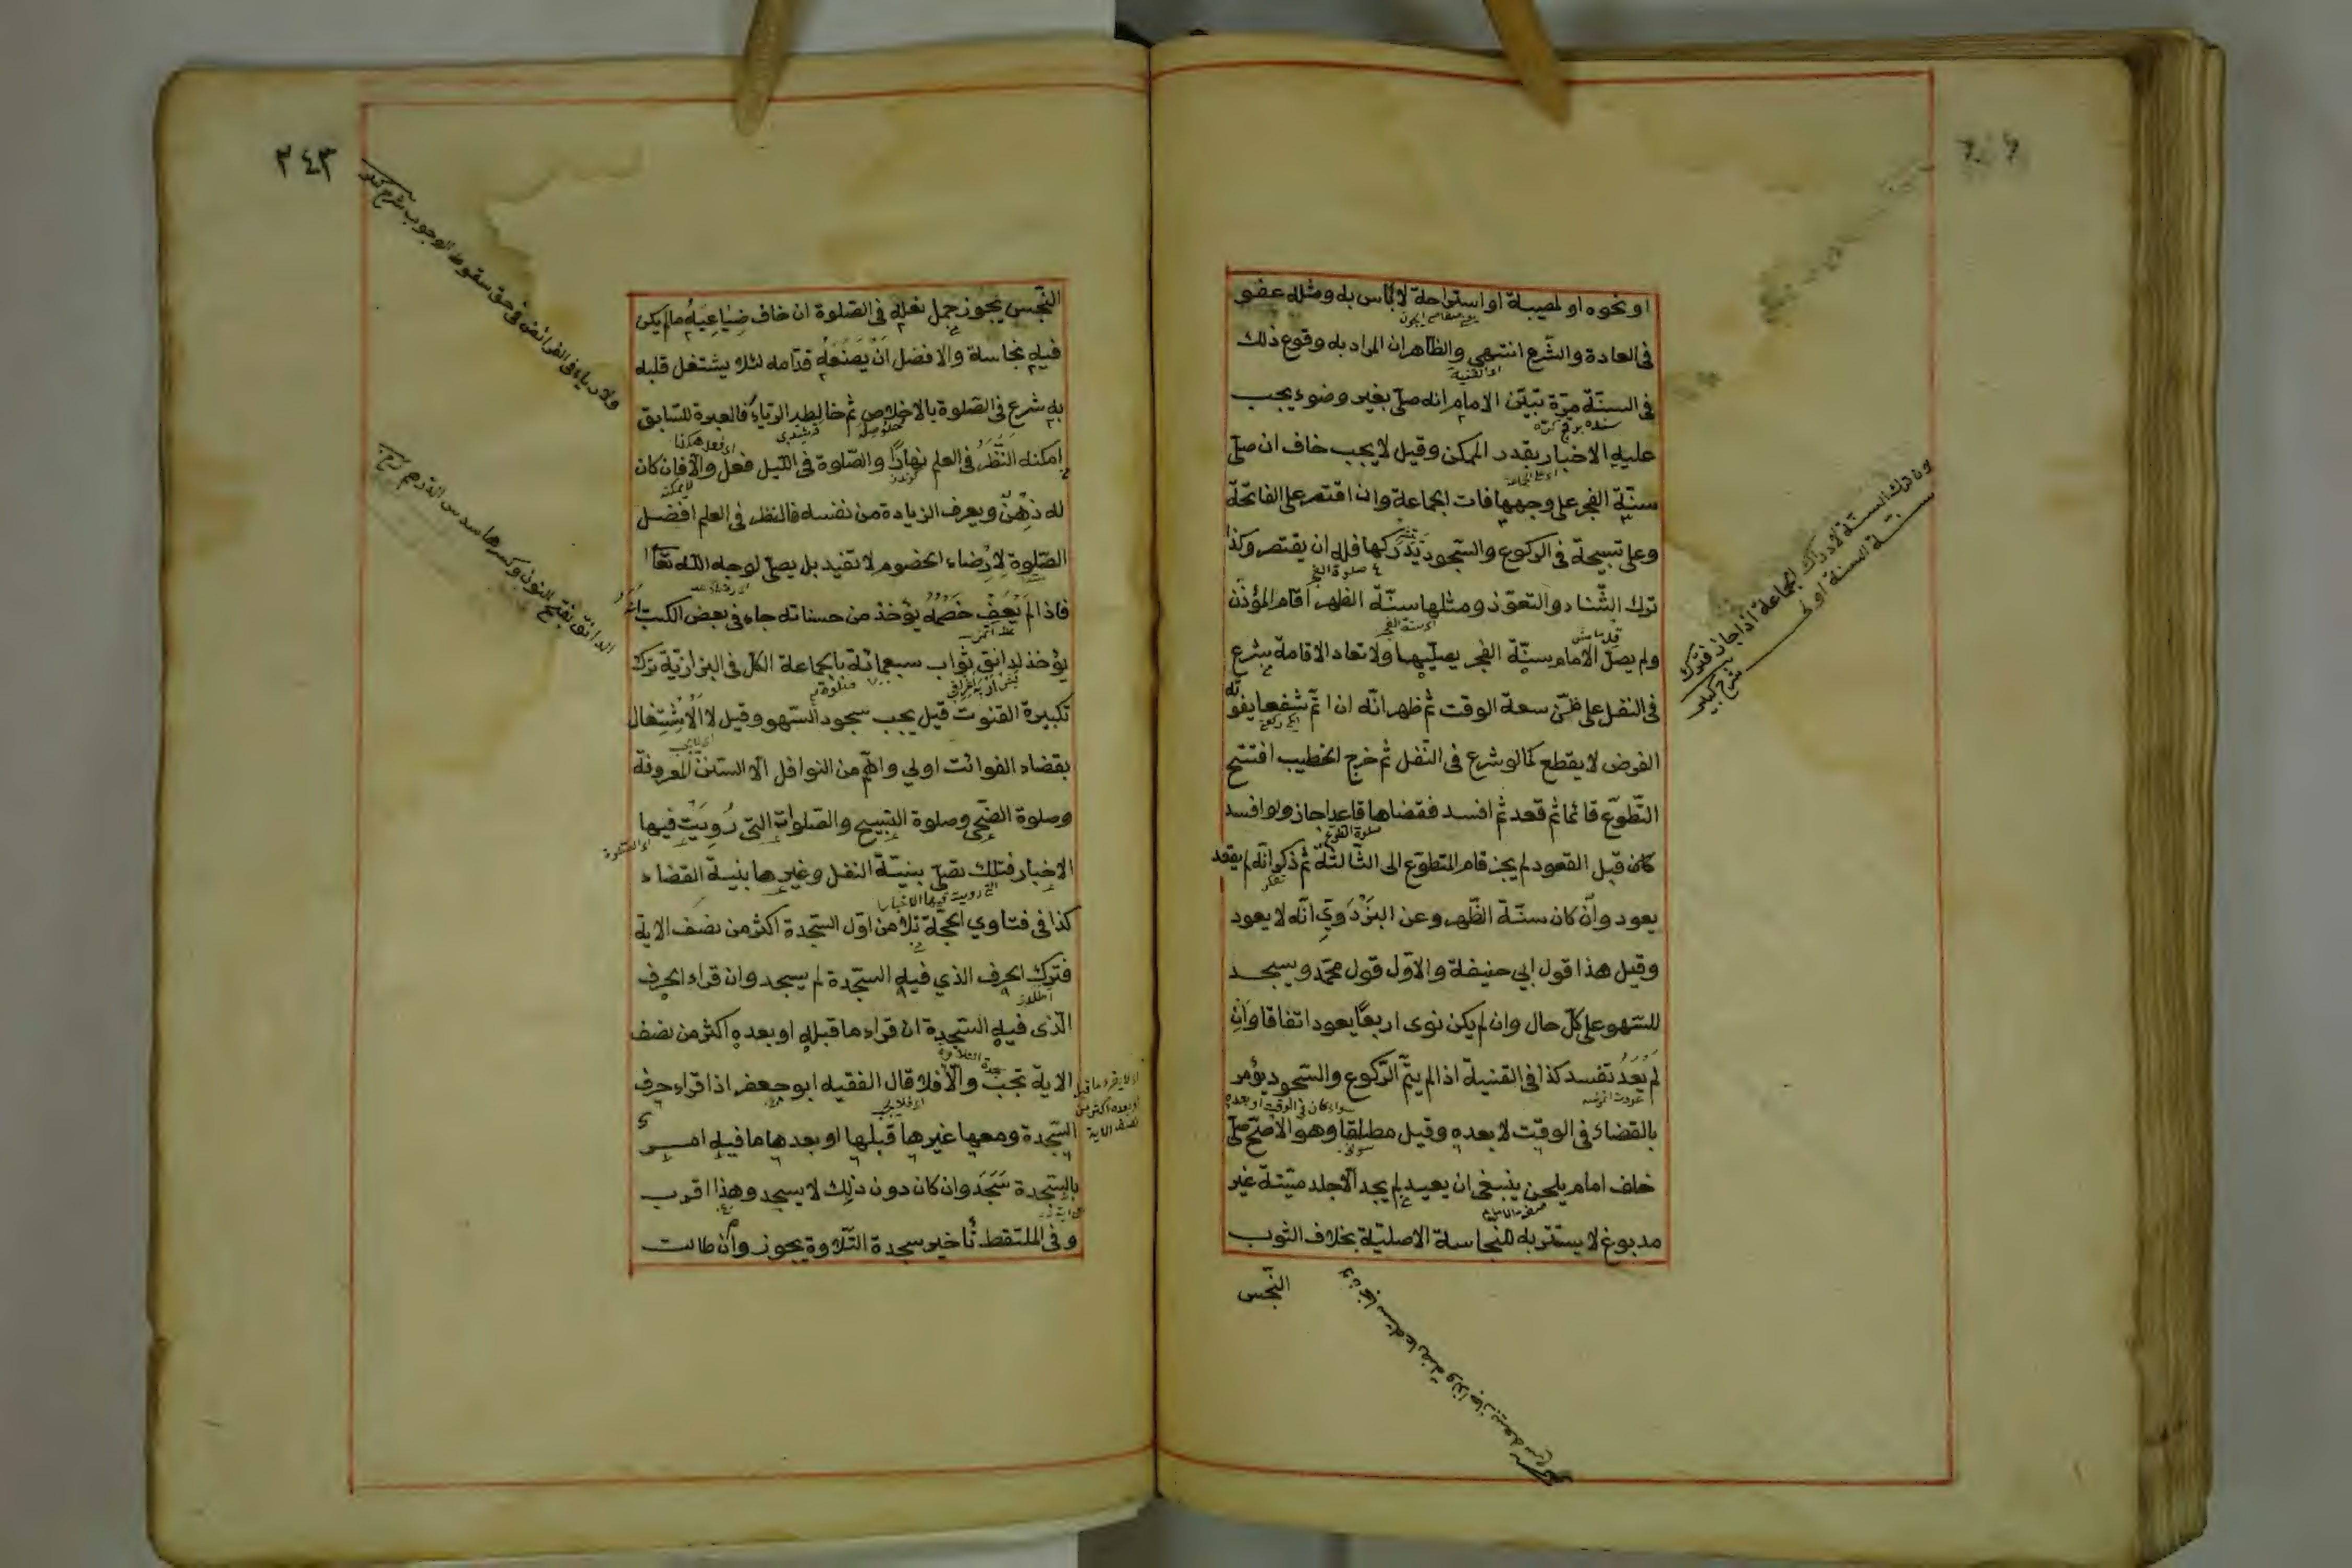 او نحوه او لمصيبة او استراحة لا بأس به ومثله عضو
في العادة والشرع انتهى والظاهر ان المراد به وقوع ذلك
في السنة مرة تبيّن الامام انه صلّى بغير وضوء يجب
عليه الاخبار بقدر الممكن وقيل لا يجب خاف ان صلّى
سنّة الفجر على وجهها فات الجماعة وان اقتصر على الفاتحة
وعلى تسبيحة في الركوع والسجود يدركها فله ان يقتصر وكذا
ترك الثناء والتعوّذ ومثلها سنّة الظهر أقام المؤذن
ولم يصلّ الامام سنّة الفجر يصلّيها ولا تعاد الاقامة شرع
في النفل على ظنّ سعة الوقت ثم ظهر انّه ان اتمّ شفعا يفوته
الفرض لا يقطع كما لو شرع في النّفل ثم خرج الخطيب افتتح
التّطوّع قائما ثم قعد ثم افسد فقضاها قاعدا جاز ولو افسد
كان قبل القعود لم يجز قام المتطوّع الى الثّالثة ثم ذكر انّه لم يقعد
يعود وأن كان سنّة الظّهر وعن البزدويّ انّه لا يعود
وقيل هذا قول ابي حنيفة والاوّل قول محمّد ويسجد
للسّهو على كلّ حال وان لم يكن نوى اربعًا يعود اتفاقا وان
لم يَعُدْ تفسد كذا في القنية اذا لم يتمّ الرّكوع والسّجود يؤمر
بالقضاء في الوقت لا بعده وقيل مطلقا وهو الاصحّ صلّى
خلف امام يلحن ينبغي ان يعيد لم يجد الّا جلد ميتة غير
مدبوغ لا يستتر به للنجاسة الاصليّة بخلاف الثوب
النّجس
لان ترك السنّة لادراك الجماعة اذا جاز فترك
سنّيّة السنة اولى
شرح كبير
٣٤٣
النّجس يجوز حمل نعله في الصّلوة ان خاف ضياعه ما لم يكن
فيه نجاسة والافضل أن يضعه قدّامه لئلا يشتغل قلبه
به شرع في الصّلوة بالاخلاص ثم خالطه الرّياء فالعبرة للسّابق
امكنه النّظر في العلم نهارًا والصّلوة في اللّيل فعل والّا فان كان
له ذهن ويعرف الزيادة من نفسه فالنظر في العلم افضل
الصّلوة لارضاء الخصوم لا تفيد بل يصلّي لوجه الله تعا
فاذا لم يَعْفُ خَصْمُه يؤخذ من حسناته جاء في بعض الكتب انه
يؤخذ لدانق ثواب سبعمائة بالجماعة الكلّ في البزازيّة ترك
تكبيرة القنوت قيل يجب سجود السّهو وقيل لا الاشتغال
بقضاء الفوائت اولى واهمّ من النوافل الّا السّنن المعروفة
وصلوة الضّحى وصلوة التسبيح والصّلوات التي رُوِيَتْ فيها
الاخبار فتلك تصلّى بنيّة النفل وغيرها بنيّة القضاء
كذا في فتاوي الحجّة تلا من اوّل السّجدة اكثر من نصف الاية
فترك الحرف الذي فيه السّجدة لم يسجد وان قراء الحرف
الّذي فيه السّجدة ان قراء ما قبله او بعده اكثر من نصف
الاية تجب والّا فلا قال الفقيه ابو جعفر اذا قراء حرف
السّجدة ومعها غيرها قبلها او بعدها ما فيه امر
بالسّجدة سَجَدَ وان كان دون ذلك لا يسجد وهذا اقرب
وفي الملتقط تأخير سجدة التّلاوة يجوز وأن طالت
ولا رياء في الفرائض في حق سقوط الوجوب شرح
الدانق بفتح النون وكسرها سدس الدرهم